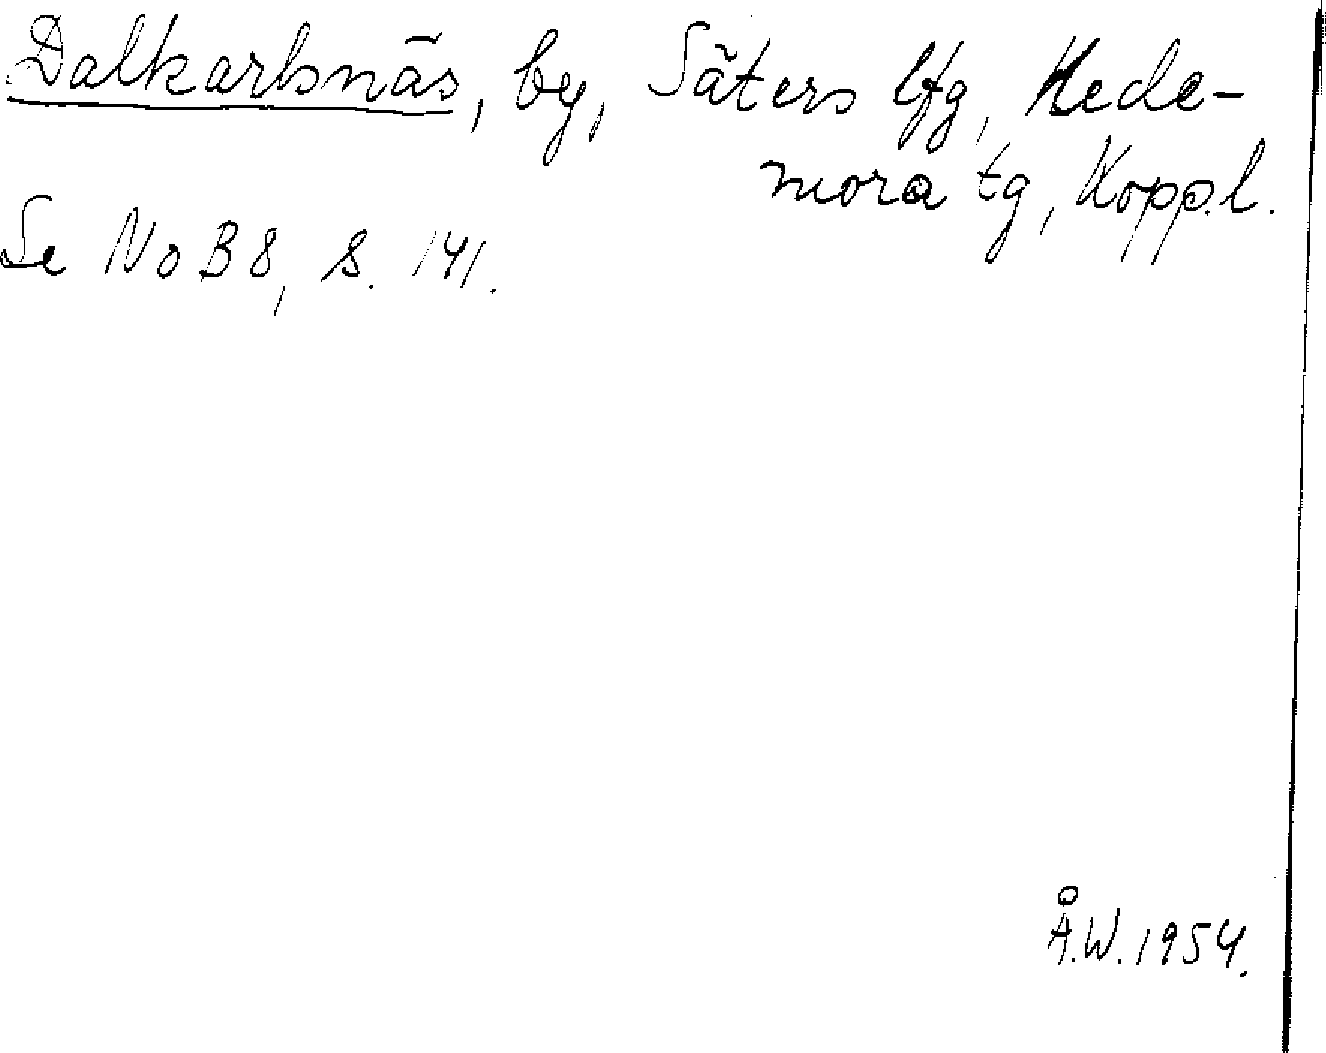 Dalkarlsnäs, by, Säters lfg, Hede-
mora tg, Kopp.l.
Se NoB 8, s. 141.
Å.W. 1954.